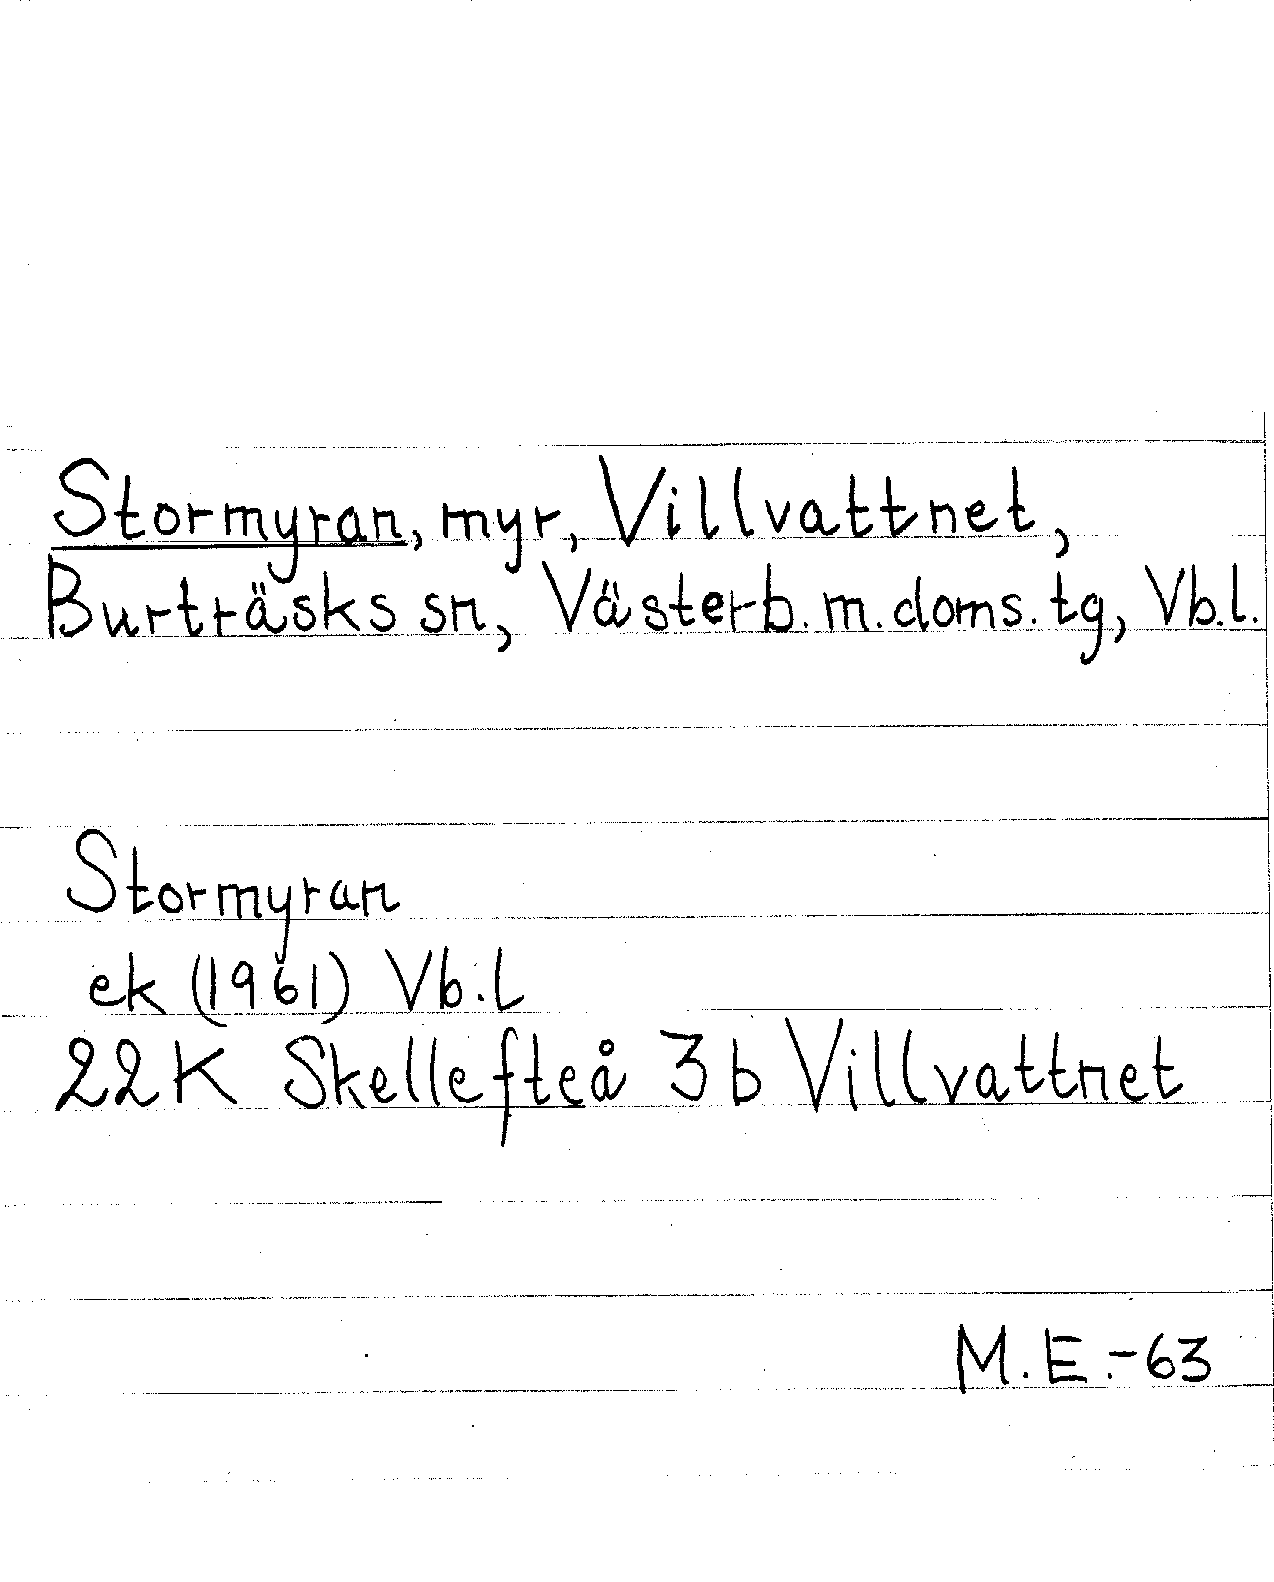 Stormyran, myr, Villvattnet,
Burträsks sn, Västerb. m. doms. tg, Vb.l.
Stormyran
ek (1961) Vb.l
22K Skellefteå 3b Villvattnet
M.E.-63